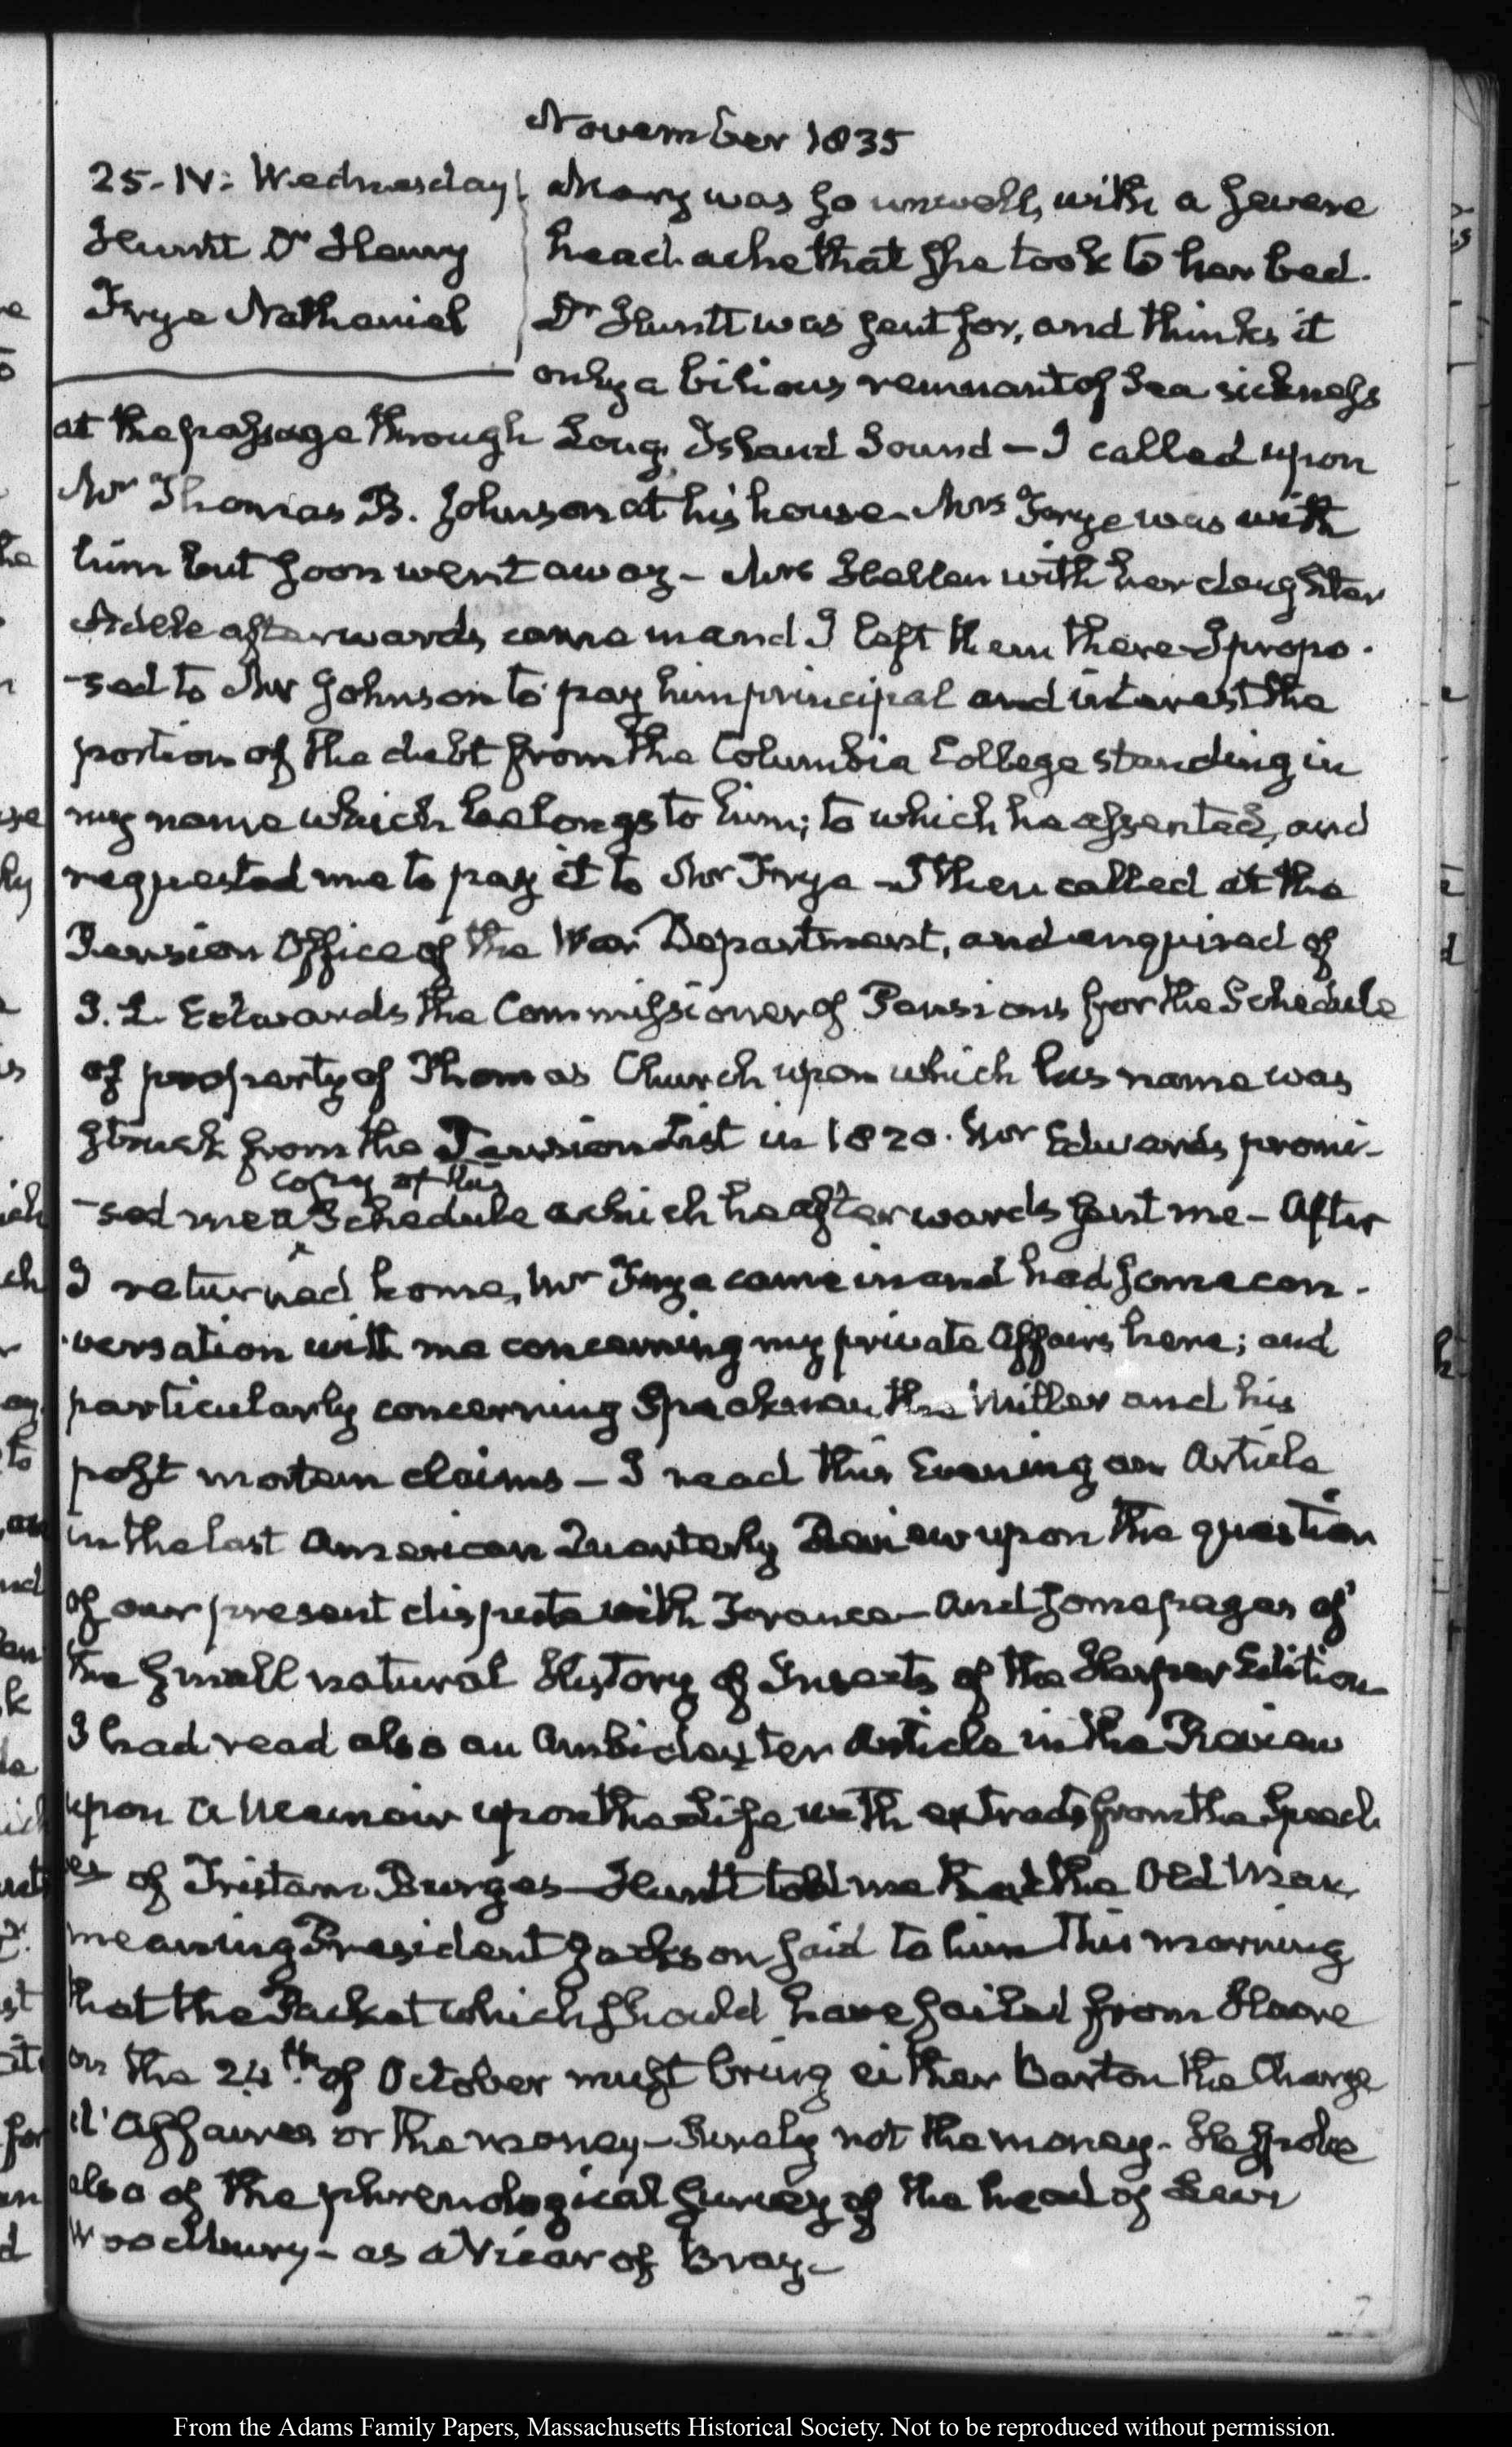 November 1835
25. IV: Wednesday
Huntt Dr Henry
Frye Nathaniel
Mary was so unwell, with a severe
head ache that she took to her bed.
Dr Huntt was sent for, and thinks it
only a bilious remnant of Sea sickness
at the passage through Long Island Sound — I called upon
Mr Thomas B. Johnson at his house. Mrs Frye was with
him but soon went away — Mrs Hellen with her daughter
Adele afterwards came in and I left them there. I propo-
-sed to Mr Johnson to pay him principal and interest the
portion of the debt from the Columbia College standing in
my name which belongs to him; to which he assented, and
requested me to pay it to Mr Frye — I then called at the
Pension Office of the War Department, and enquired of
J. L. Edwards the Commissioner of Pensions for the Schedule
of property of Thomas Church upon which his name was
struck from the Pension List in 1820. Mr Edwards promi-
copy of this
-sed me a Schedule which he afterwards sent me — After
I returned home, Mr Frye came in and had some con-
-versation with me concerning my private Affairs here; and
particularly concerning Speakman the Miller and his
post mortem claims — I read this Evening an Article
in the last American Quarterly Review upon the question
of our present dispute with France — and some pages of
the small natural History of Insects of the Harper Edition
I had read also an Ambidexter Article in the Review
upon a Memoir upon the Life with extracts from the Speech
es of Tristam Burges — Huntt told me that the Old Man,
meaning President Jackson said to him this morning
that the Packet which should have sailed from Havre
on the 24th of October must bring either Barton the Charge
d'Affaires or the money — Surely not the money. He spoke
also of the phrenological survey of the head of Levi
Woodbury — as a Vicar of Bray —
From the Adams Family Papers, Massachusetts Historical Society. Not to be reproduced without permission.